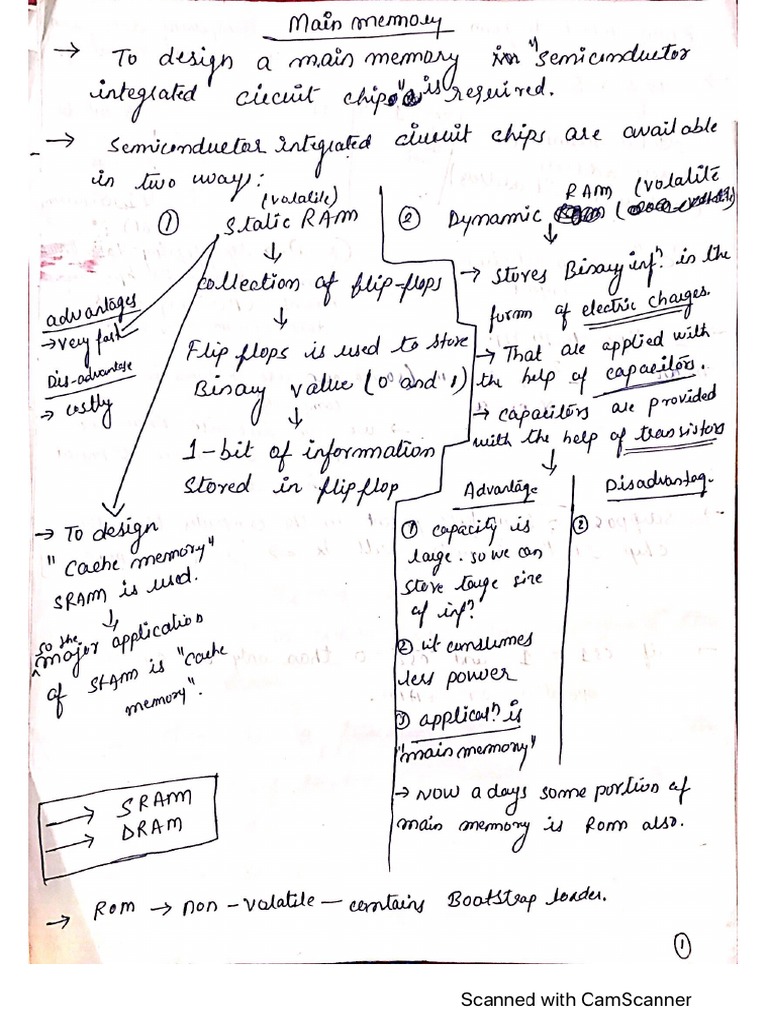 Main memory
→ To design a main memory "semiconductor
integrated circuit chips" is required.
→ Semiconductor integrated circuit chips are available
in two way:
① Static RAM (volatile)
↓
collection of flip-flops
↓
Flip flops is used to store
Binary value (0 and 1)
↓
1-bit of information
Stored in flipflop
advantages
→ very fast
Dis-advantage
→ costly
→ To design
"Cache memory"
SRAM is used.
↓
so the
major application
of SRAM is "Cache
memory".
② Dynamic RAM (volatile
↓
→ Stores Binary infⁿ in the
form of electric charges.
→ That are applied with
the help of capacitors.
→ capacitors are provided
with the help of transistors
↓
Advantage
① capacity is
large. so we can
store large size
of infⁿ
② it consumes
less power
③ applicatⁿ is
"main memory"
Disadvantag.
②
→ Now a days some portion of
main memory is Rom also.
→ SRAM
→ DRAM
→ Rom → non-volatile — contains Bootstrap loader.
①
Scanned with CamScanner